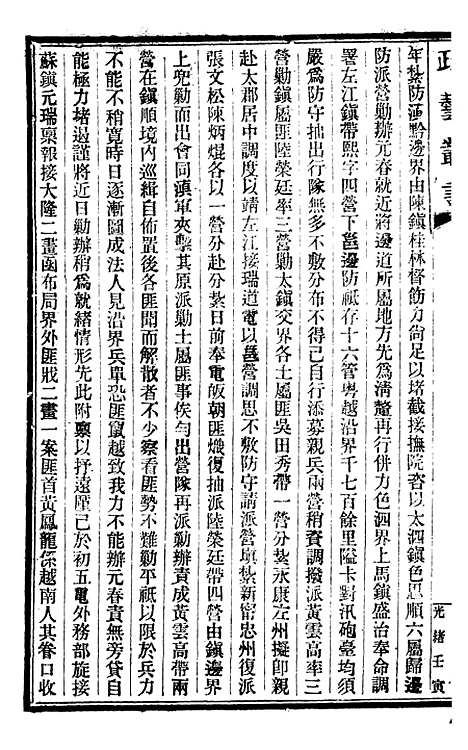 政藝叢書
光緒壬寅
年紮防滇黔邊界由陳鎮桂林督飭力尙足以堵截接撫院咨以太泗鎮色恩順六屬歸邊
防派營勦辦元春就近將邊道所屬地方先爲淸釐再行併力色泗界上馬鎮盛治奉命調
署左江鎮帶熙字四營下邕邊防祇存十六營粤越沿界千七百餘里隘卡對汛砲臺均須
嚴爲防守抽出行隊無多不敷分布不得已自行添募親兵兩營稍資調撥派黃雲高率三
營勦鎮屬匪陸榮廷率三營勦太鎮交界各土屬匪吳田秀帶一營分紮永康左州擬卽親
赴太郡居中調度以靖左江接瑞道電以邕營調思不敷防守請派營塡紮新甯忠州復派
張文松陳炳焜各以一營分赴分紮日前奉電皖朝匪熾復抽派陸榮廷帶四營由鎮邊界
上兜勦而出會同滇軍夾擊其原派勦土屬匪事俟勻出營隊再派勦辦責成黃雲高帶兩
營在鎮順境內巡緝自佈置後各匪聞而解散者不少察看匪勢不難勦平祇以限於兵力
不能不稍寬時日逐漸圖成法人見沿界兵單恐匪竄越致我力不能辦元春責無旁貸自
能極力堵遏謹將近日勦辦稍爲就緒情形先此附禀以抒遠厪已於初五電外務部旋接
蘇鎮元瑞稟報接大隆二畫函布局界外匪戕二畫一案匪首黃鳳龍係越南人其眷口收